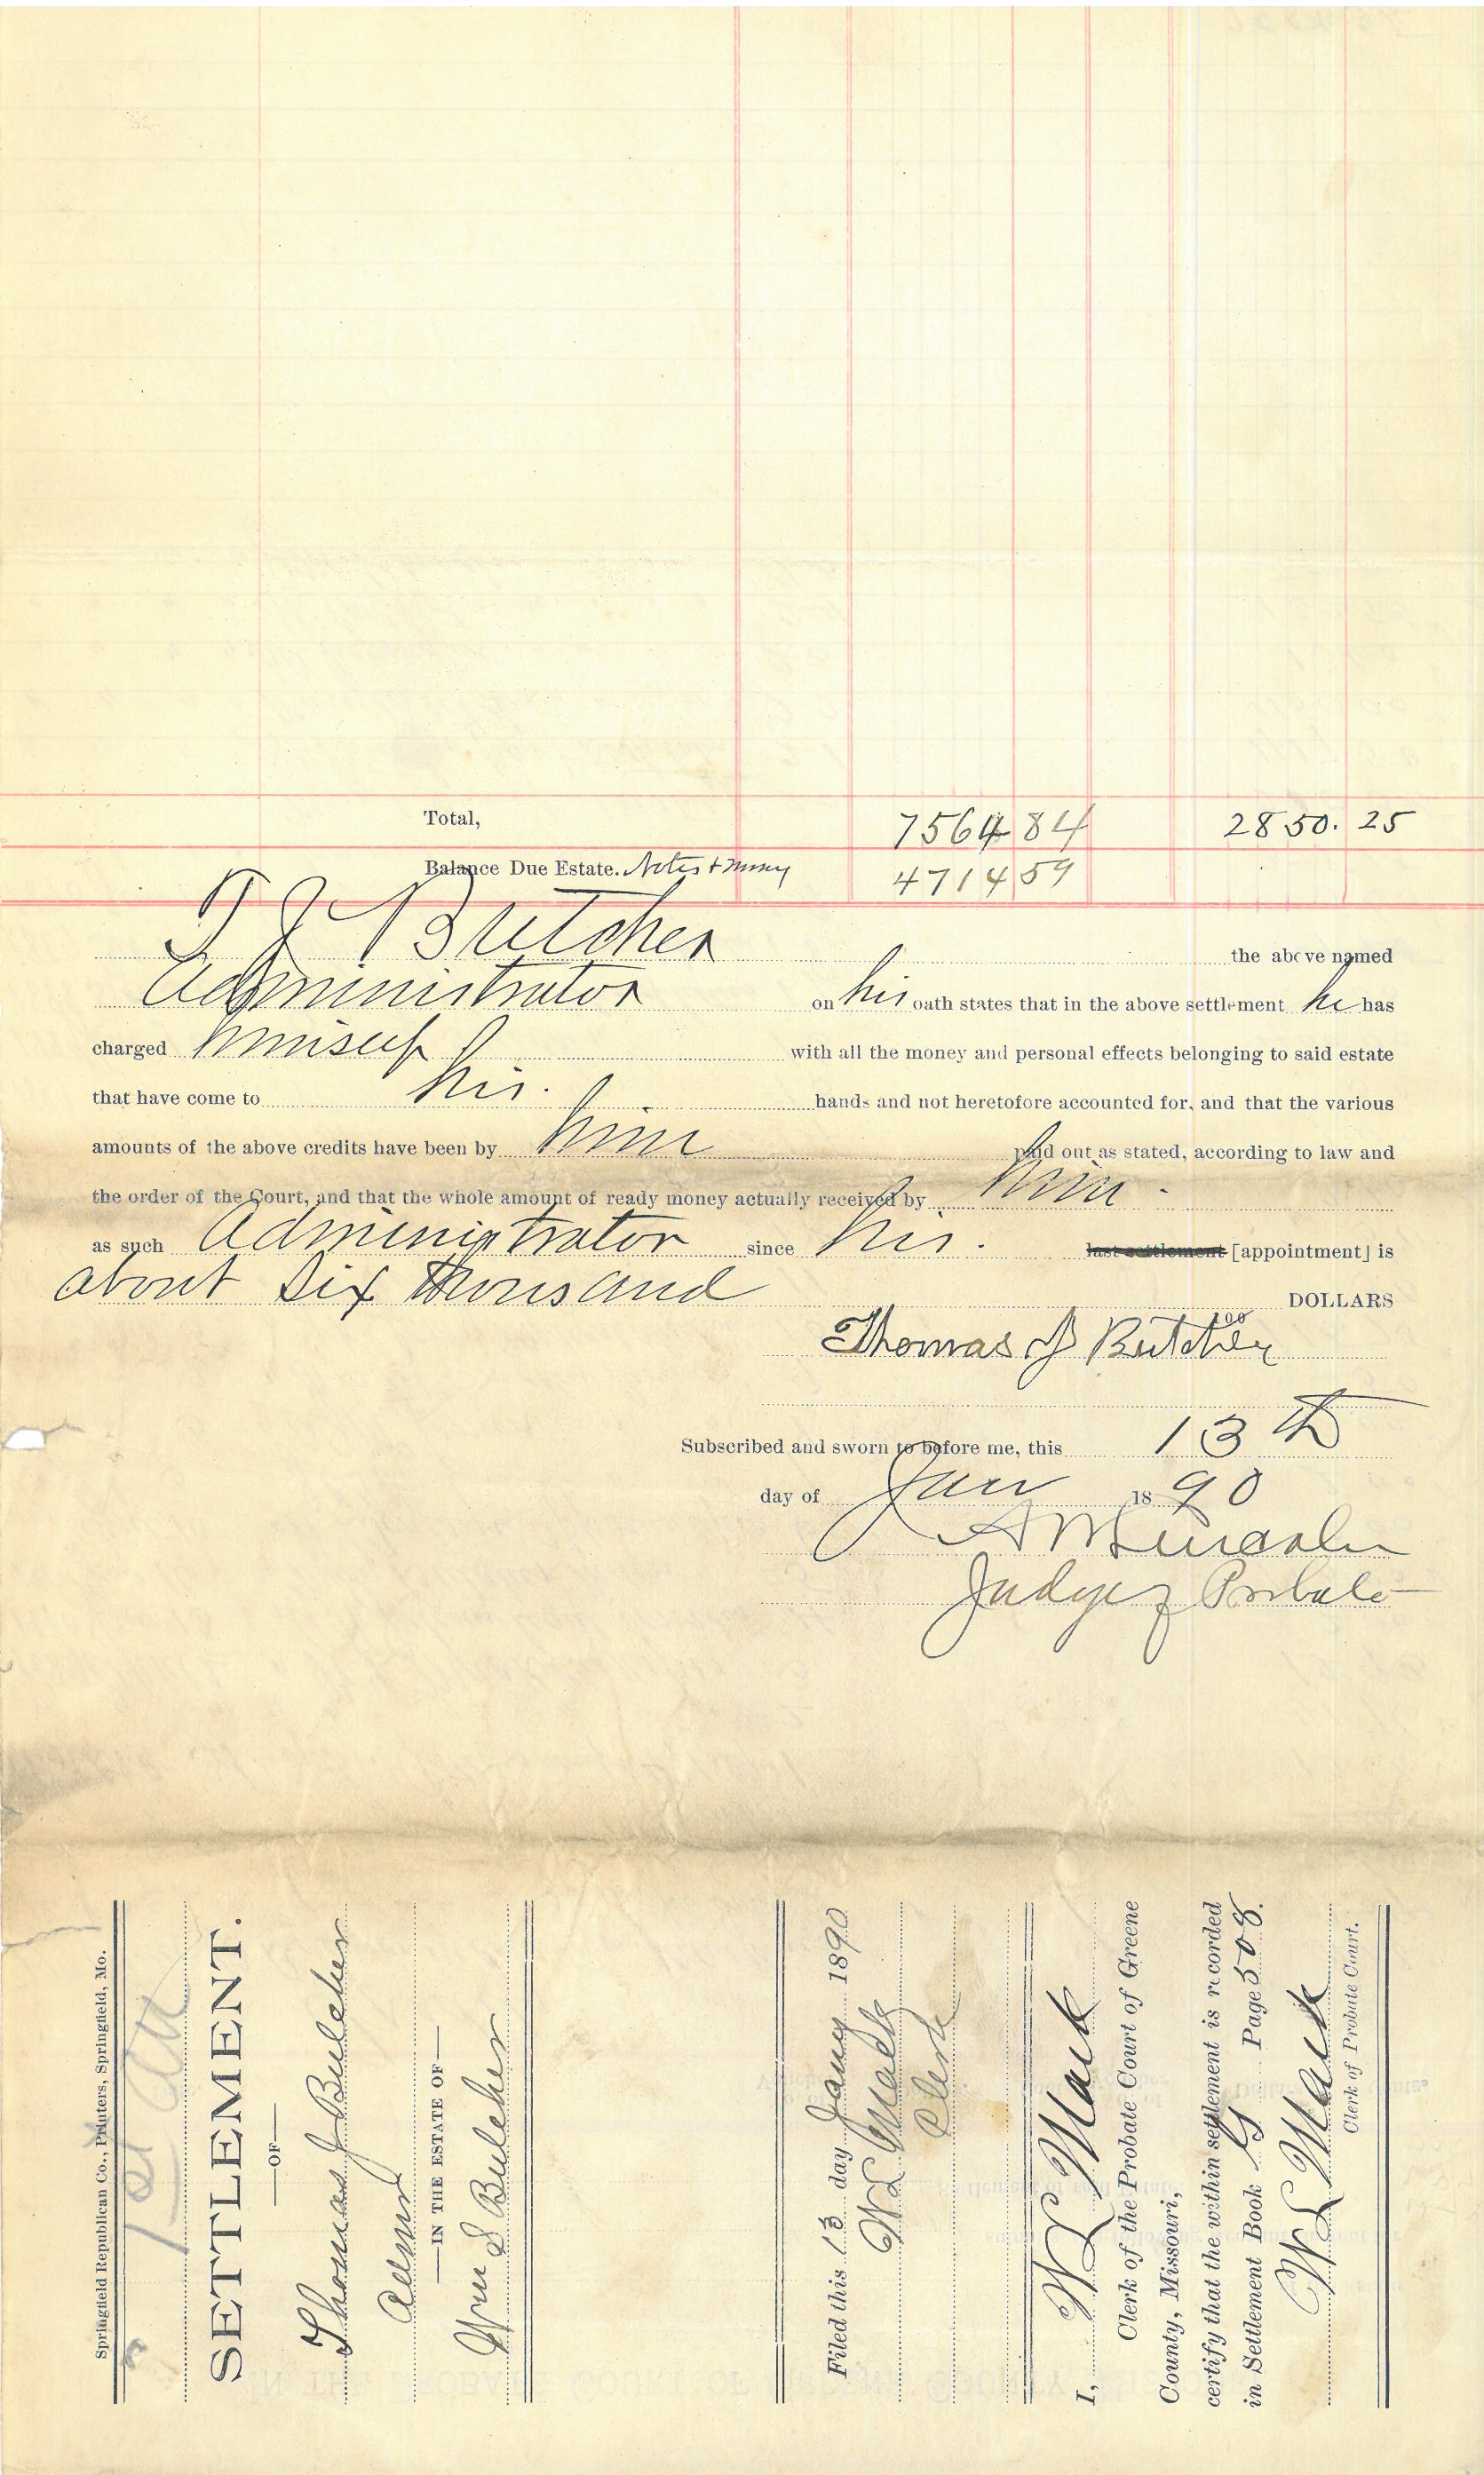 Total, 7564 84 2850. 25
Balance Due Estate. Notes & money 4714 59
T J Butcher the above named
Administrator on his oath states that in the above settlement he has
charged himself with all the money and personal effects belonging to said estate
that have come to his. hands and not heretofore accounted for, and that the various
amounts of the above credits have been by him paid out as stated, according to law and
the order of the Court, and that the whole amount of ready money actually received by him -
as such Administrator since his. last settlement [appointment] is
about Six thousand DOLLARS
100
Thomas J Butcher
Subscribed and sworn to before me, this 13th
day of Jan 1890
A M Lincoln
Judge of Probate
Springfield Republican Co., Printers, Springfield, Mo.
SETTLEMENT.
—OF—
Thomas J Butcher
Admr
—IN THE ESTATE OF—
Wm S Butcher
Filed this 13 day Jany 1890
W L Mack
Clerk
I, W L Mack
Clerk of the Probate Court of Greene
County, Missouri,
certify that the within settlement is recorded
in Settlement Book G Page 508.
W L Mack
Clerk of Probate Court.